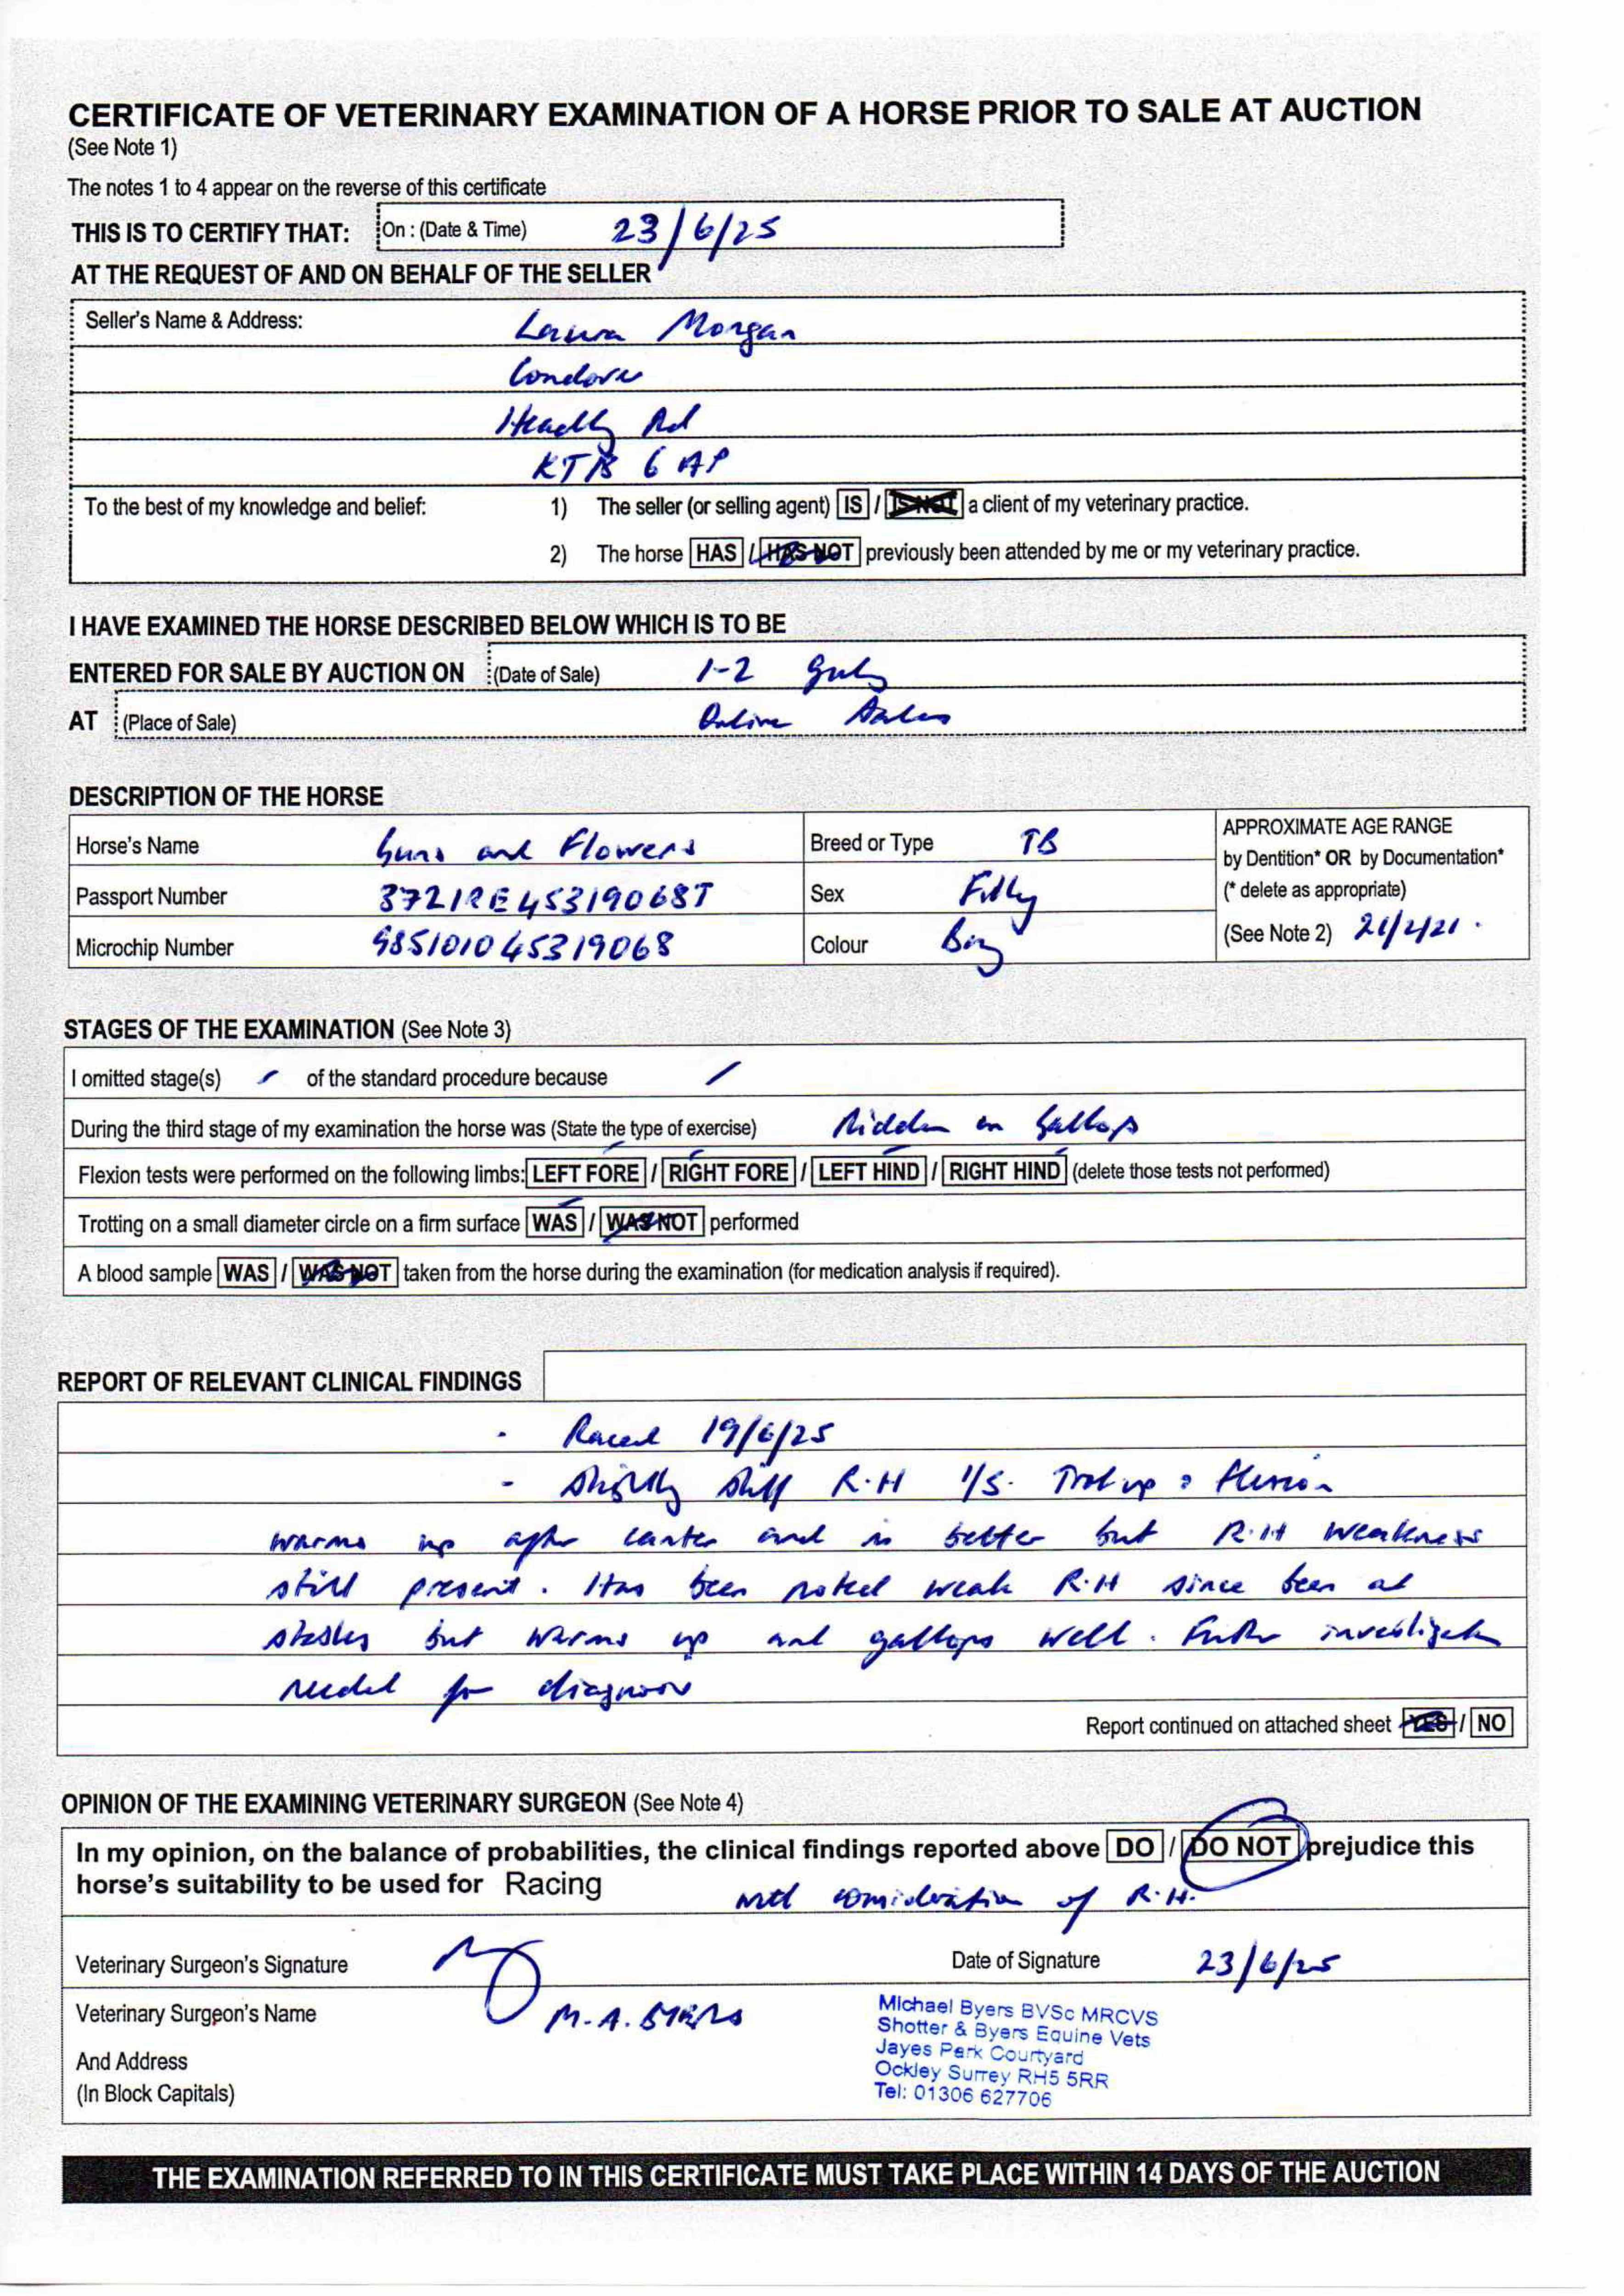 CERTIFICATE OF VETERINARY EXAMINATION OF A HORSE PRIOR TO SALE AT AUCTION
(See Note 1)
The notes 1 to 4 appear on the reverse of this certificate
THIS IS TO CERTIFY THAT: On : (Date & Time) 23/6/25
AT THE REQUEST OF AND ON BEHALF OF THE SELLER
Seller's Name & Address: Laura Morgan
Condover
Headly Rd
6 AP
To the best of my knowledge and belief: 1) The seller (or selling agent) IS / IS NOT a client of my veterinary practice.
2) The horse HAS / HAS NOT previously been attended by me or my veterinary practice.
I HAVE EXAMINED THE HORSE DESCRIBED BELOW WHICH IS TO BE
ENTERED FOR SALE BY AUCTION ON (Date of Sale) 1-2 July
AT (Place of Sale) Online Sales
DESCRIPTION OF THE HORSE
Horse's Name Guns and Flowers Breed or Type TB APPROXIMATE AGE RANGE
by Dentition* OR by Documentation*
Passport Number 372IRE45319068T Sex Filly (* delete as appropriate)
Microchip Number 985101045319068 Colour Bay (See Note 2)
STAGES OF THE EXAMINATION (See Note 3)
I omitted stage(s) / of the standard procedure because /
During the third stage of my examination the horse was (State the type of exercise) Ridden on Gallops
Flexion tests were performed on the following limbs: LEFT FORE / RIGHT FORE / LEFT HIND / RIGHT HIND (delete those tests not performed)
Trotting on a small diameter circle on a firm surface WAS / WAS NOT performed
A blood sample WAS / WAS NOT taken from the horse during the examination (for medication analysis if required).
REPORT OF RELEVANT CLINICAL FINDINGS
- Raced 19/6/25
- slightly stiff R.H Trot up flexion
warms up after canter and is better but R.H weakness
still present. Has been noted weak R.H since been at
stables but warms up and gallops well. Further investigation
needed for diagnosis
Report continued on attached sheet YES / NO
OPINION OF THE EXAMINING VETERINARY SURGEON (See Note 4)
In my opinion, on the balance of probabilities, the clinical findings reported above DO / DO NOT prejudice this
horse's suitability to be used for Racing with consideration of R.H.
Veterinary Surgeon's Signature Date of Signature 23/6/25
Veterinary Surgeon's Name M.A. BYERS
And Address
(In Block Capitals)
Michael Byers BVSc MRCVS
Shotter & Byers Equine Vets
Jayes Park Courtyard
Ockley Surrey RH5 5RR
Tel: 01306 627706
THE EXAMINATION REFERRED TO IN THIS CERTIFICATE MUST TAKE PLACE WITHIN 14 DAYS OF THE AUCTION